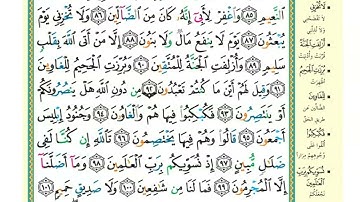 ٱلنَّعِيمِ ٨٥ وَٱغْفِرْ لِأَبِىٓ إِنَّهُۥ كَانَ مِنَ ٱلضَّآلِّينَ ٨٦ وَلَا تُخْزِنِى يَوْمَ
يُبْعَثُونَ ٨٧ يَوْمَ لَا يَنفَعُ مَالٌ وَلَا بَنُونَ ٨٨ إِلَّا مَنْ أَتَى ٱللَّهَ بِقَلْبٍ
سَلِيمٍ ٨٩ وَأُزْلِفَتِ ٱلْجَنَّةُ لِلْمُتَّقِينَ ٩٠ وَبُرِّزَتِ ٱلْجَحِيمُ لِلْغَاوِينَ
٩١ وَقِيلَ لَهُمْ أَيْنَ مَا كُنتُمْ تَعْبُدُونَ ٩٢ مِن دُونِ ٱللَّهِ هَلْ يَنصُرُونَكُمْ
أَوْ يَنتَصِرُونَ ٩٣ فَكُبْكِبُوا۟ فِيهَا هُمْ وَٱلْغَاوُۥنَ ٩٤ وَجُنُودُ إِبْلِيسَ
أَجْمَعُونَ ٩٥ قَالُوا۟ وَهُمْ فِيهَا يَخْتَصِمُونَ ٩٦ تَٱللَّهِ إِن كُنَّا لَفِى
ضَلَٰلٍ مُّبِينٍ ٩٧ إِذْ نُسَوِّيكُم بِرَبِّ ٱلْعَٰلَمِينَ ٩٨ وَمَآ أَضَلَّنَآ
إِلَّا ٱلْمُجْرِمُونَ ٩٩ فَمَا لَنَا مِن شَٰفِعِينَ ١٠٠ وَلَا صَدِيقٍ حَمِيمٍ ١٠١